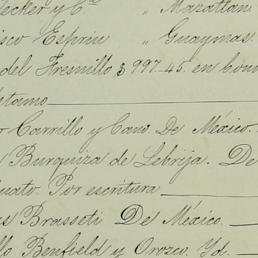 ecker y Cª " Mazatlan
isco Espriu " Guaymas.
del Fresnillo $ 997-45. en bono
stamo
r Carrillo y Cano. De México.
Burgunza de Lebrija. De
uato Por escritura
us Brasseti De México.
llo Benfield y Orozco. Yd.